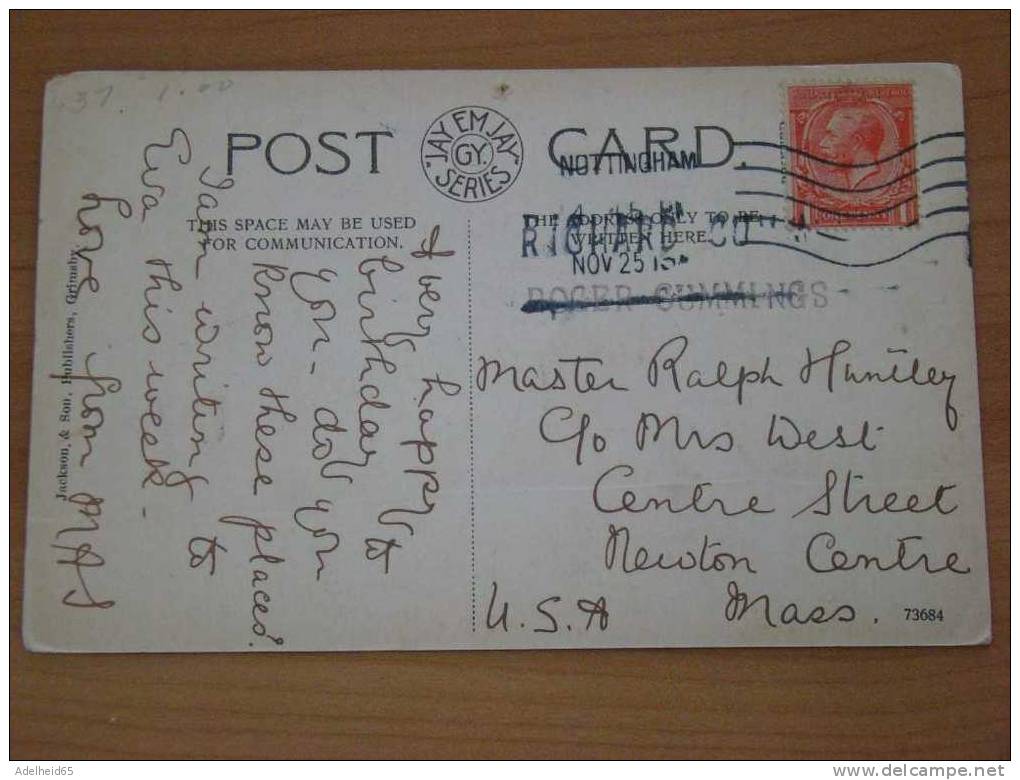 37. 1.00
POST CARD.
JAY EM JAY
GY.
SERIES
NOTTINGHAM
NOV 25
THIS SPACE MAY BE USED
FOR COMMUNICATION.
THE ADDRESS ONLY TO BE
WRITTEN HERE.
ROGER CUMMINGS
A very happy
birthday to
you - do you
know these places?
I am writing to
Eva this week -
Love from
Jackson, & Son, Publishers, Grimsby
Master Ralph Huntley
C/o Mrs West
Centre Street
Newton Centre
Mass.
U.S.A
73684
Adelheid65
www.delcampe.net